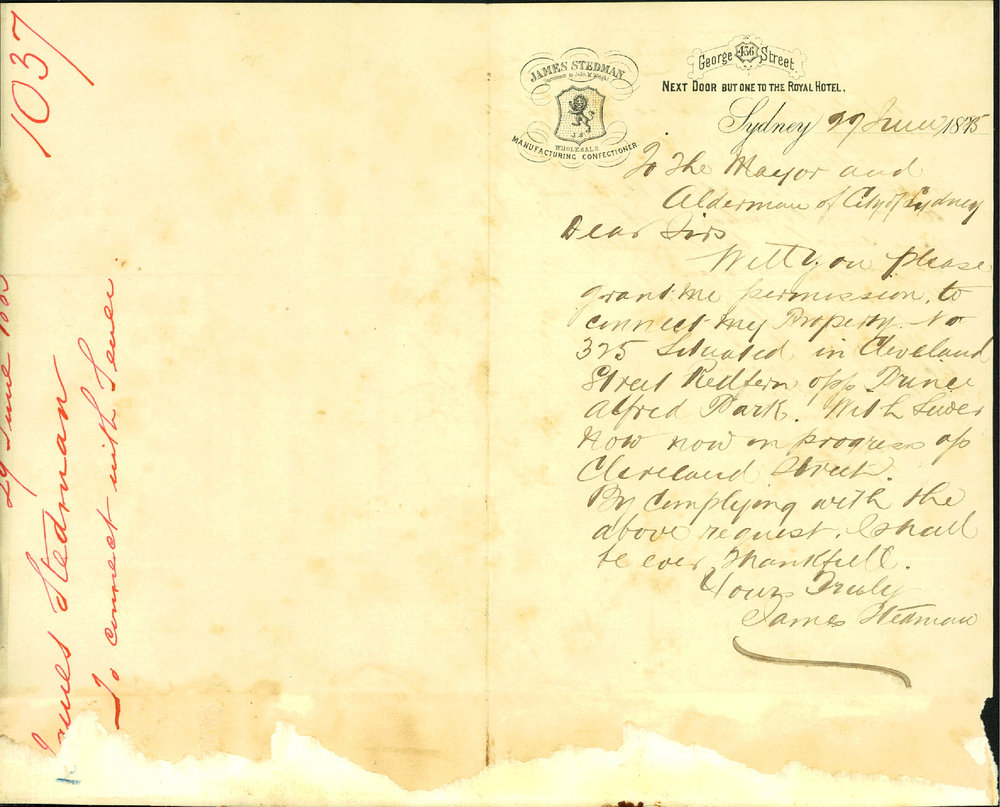 1037
29 June
James Stedman
To connect with Sewer
JAMES STEDMAN
Successor to John M. 
J.S.
WHOLESALE
MANUFACTURING CONFECTIONER
George 456 Street
NEXT DOOR BUT ONE TO THE ROYAL HOTEL.
Sydney 29 June 1875
To the Mayor and
Alderman of City of Sydney
Dear Sirs
Will you please
grant me permission, to
connect my Property. No
325 Situated in Cleveland
Street Redfern, opp Prince
Alfred Park. With Sewer
now now in progress op
Cleveland Street.
By Complying with the
above request. I shall
be ever Thankfull.
Yours Truly
James Stedman